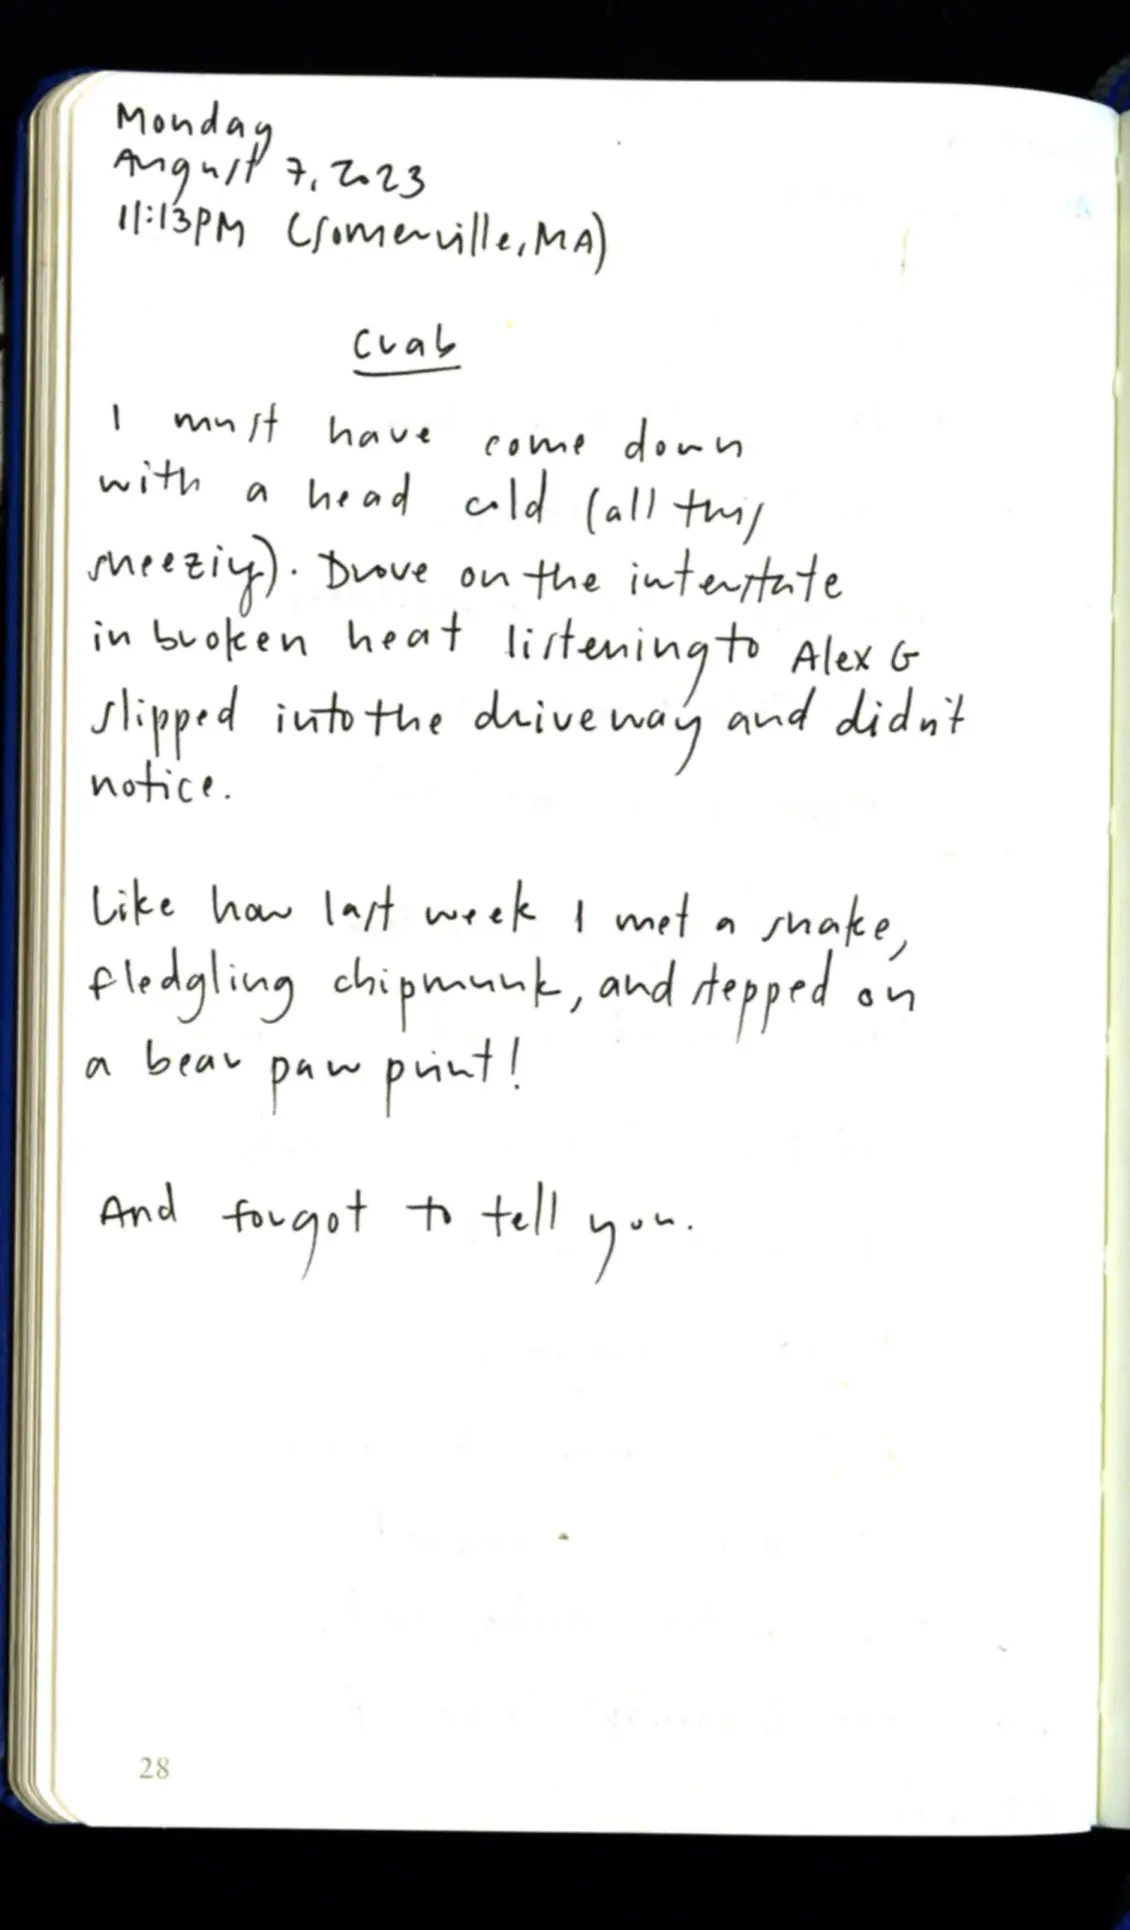 Monday
August 7, 2023
11:13PM (Somerville, MA)
Crab
I must have come down
with a head cold (all this
sneezing). Drove on the interstate
in broken heat listening to Alex G
slipped into the driveway and didn't
notice.
Like how last week I met a snake,
fledgling chipmunk, and stepped on
a bear paw print!
And forgot to tell you.
28